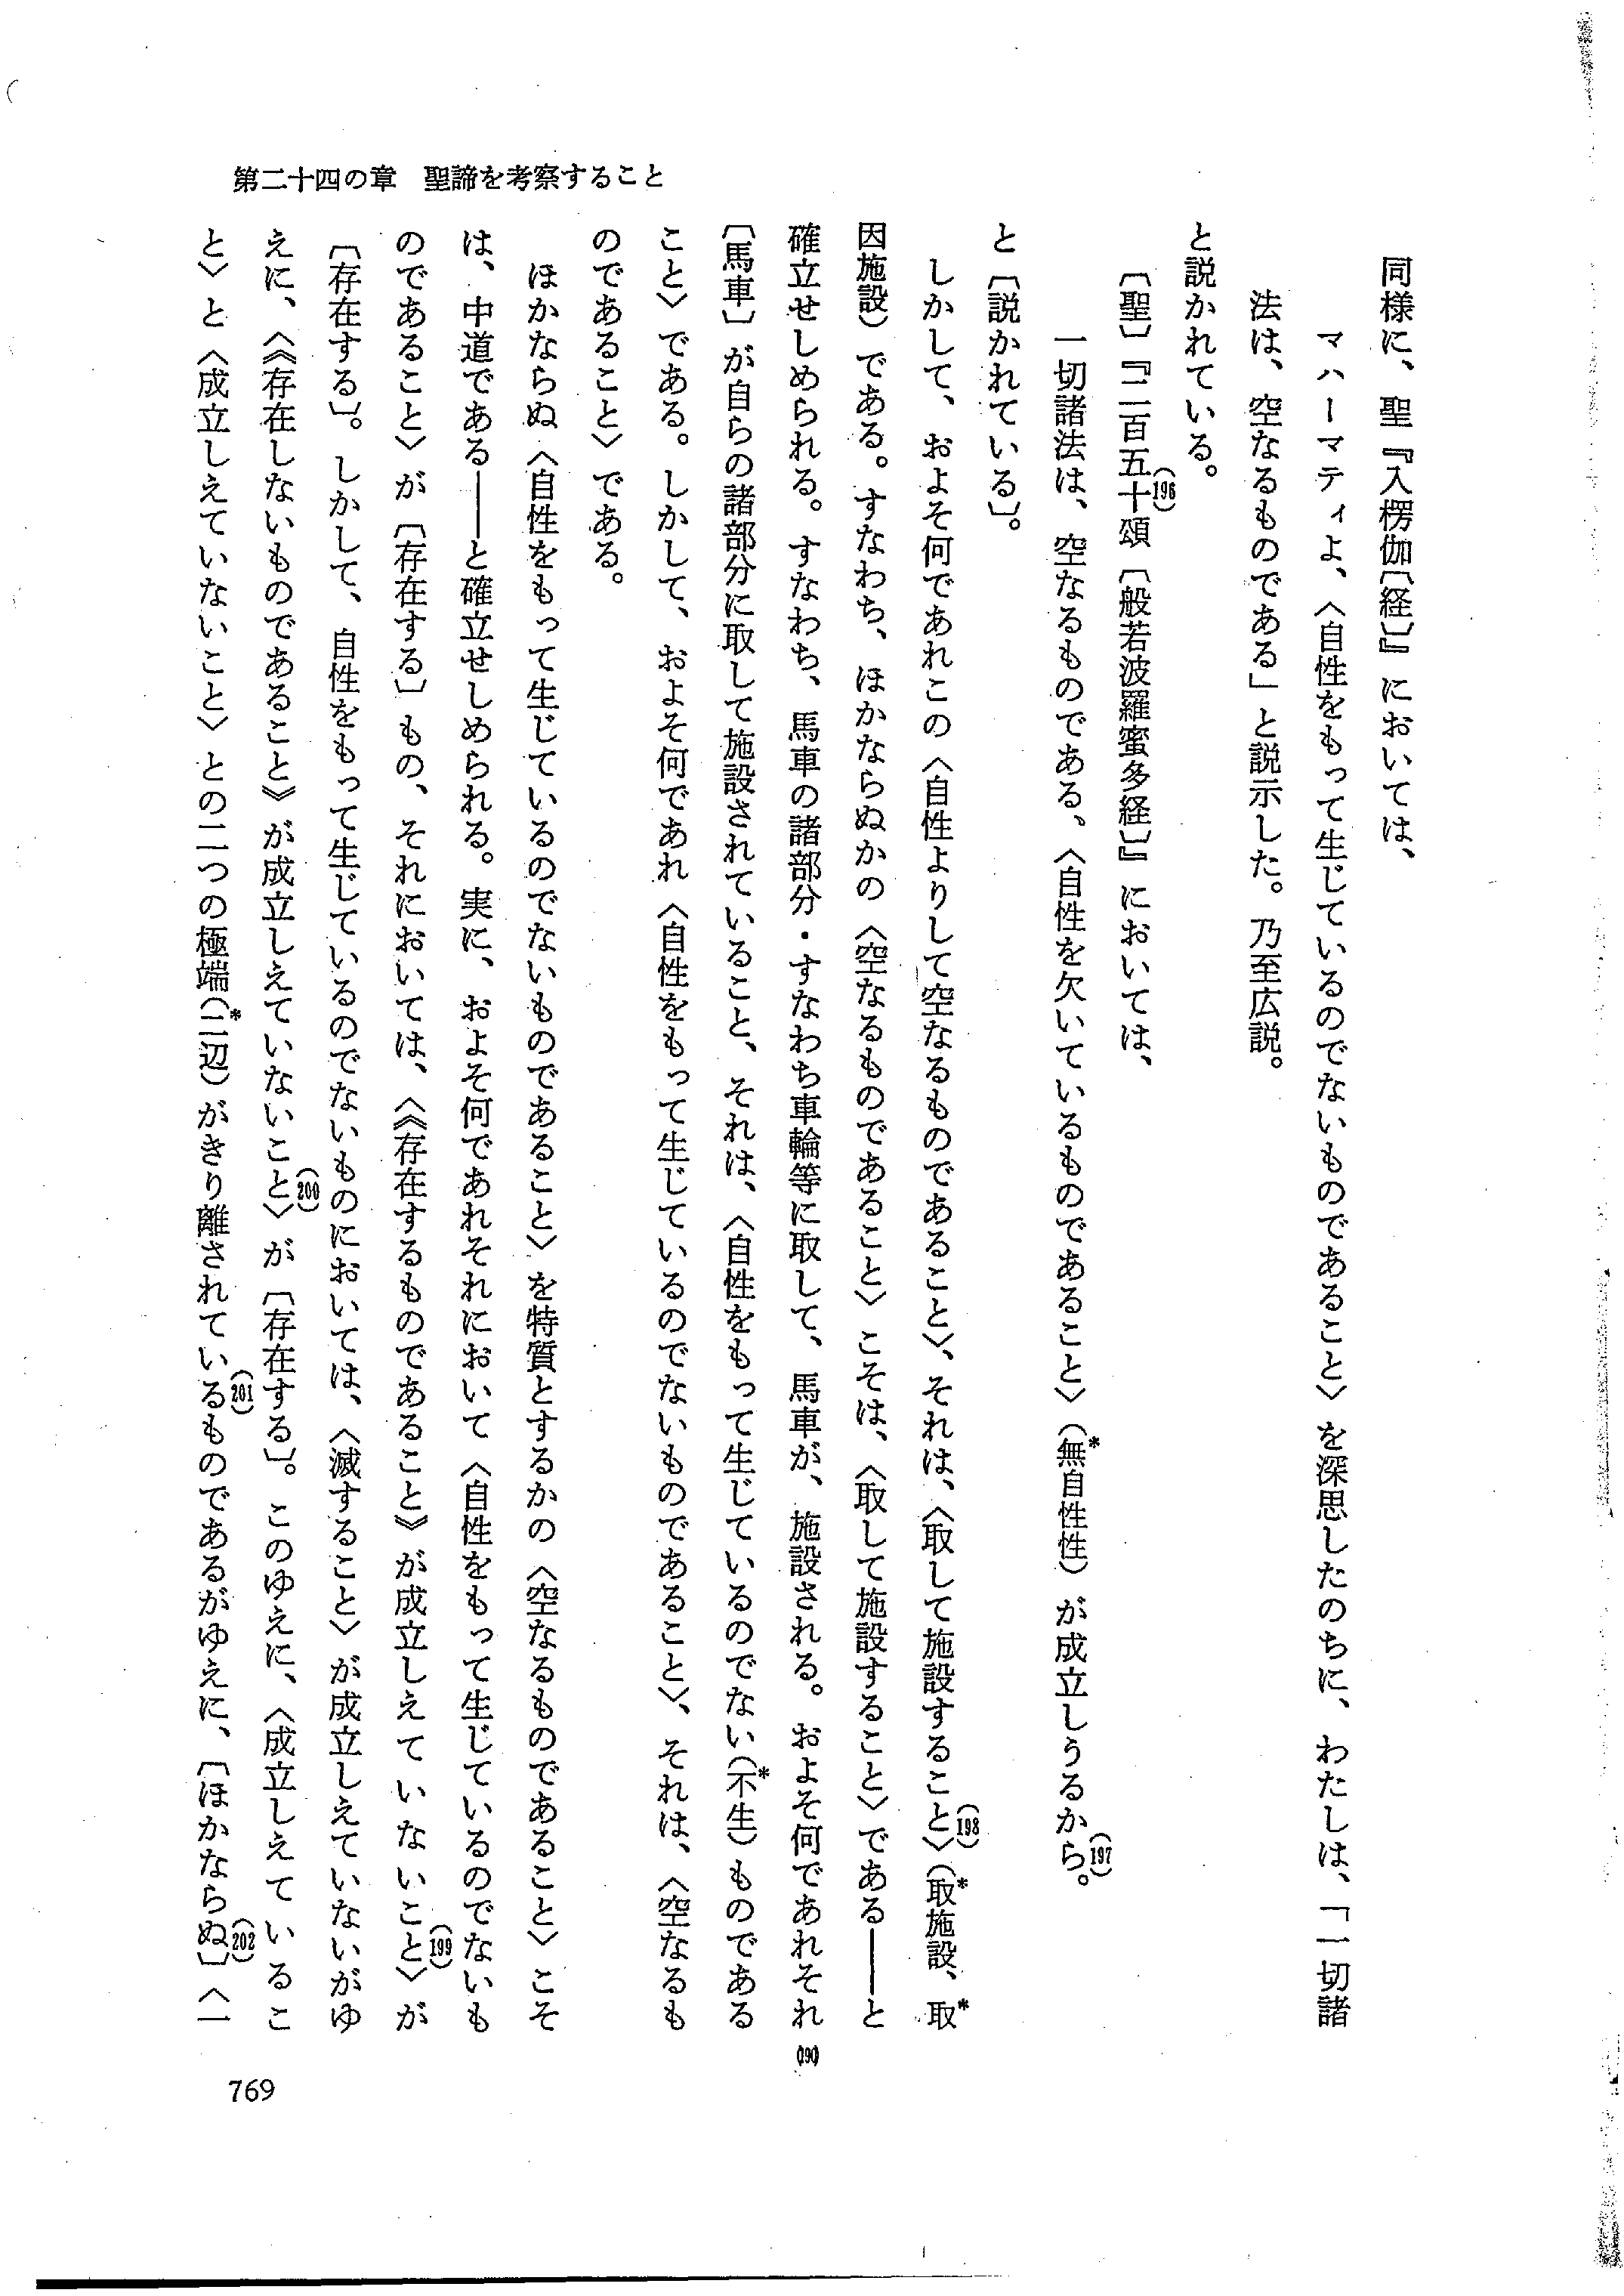 第二十四の章　聖諦を考察すること
同様に、聖『入楞伽〔経〕』においては、
マハーマティよ、〈自性をもって生じているのでないものであること〉を深思したのちに、わたしは、「一切諸
法は、空なるものである」と説示した。乃至広説。
と説かれている。
〔聖〕『二百五十頌〔般若波羅蜜多経〕』においては、(196)
一切諸法は、空なるものである、〈自性を欠いているものであること〉（無*自性性）が成立しうるから。(197)
と〔説かれている〕。
しかして、およそ何であれこの〈自性よりして空なるものであること〉、それは、〈取して施設すること〉(198)（取*施設、取*
因施設）である。すなわち、ほかならぬかの〈空なるものであること〉こそは、〈取して施設すること〉である――と
確立せしめられる。すなわち、馬車の諸部分・すなわち車輪等に取して、馬車が、施設される。およそ何であれそれ
〔馬車〕が自らの諸部分に取して施設されていること、それは、〈自性をもって生じているのでない（不*生）ものである
こと〉である。しかして、およそ何であれ〈自性をもって生じているのでないものであること〉、それは、〈空なるも
のであること〉である。
ほかならぬ〈自性をもって生じているのでないものであること〉を特質とするかの〈空なるものであること〉こそ
は、中道である――と確立せしめられる。実に、およそ何であれそれにおいて〈自性をもって生じているのでないも
のであること〉が〔存在する〕もの、それにおいては、〈《存在するものであること》が成立しえていないこと〉(199)が
〔存在する〕。しかして、自性をもって生じているのでないものにおいては、〈滅すること〉が成立しえていないがゆ
えに、〈《存在しないものであること》が成立しえていないこと〉(200)が〔存在する〕。このゆえに、〈成立しえているこ
と〉と〈成立しえていないこと〉との二つの極端（二*辺）がきり離されている(201)ものであるがゆえに、〔ほかならぬ〕(202)〈一
769